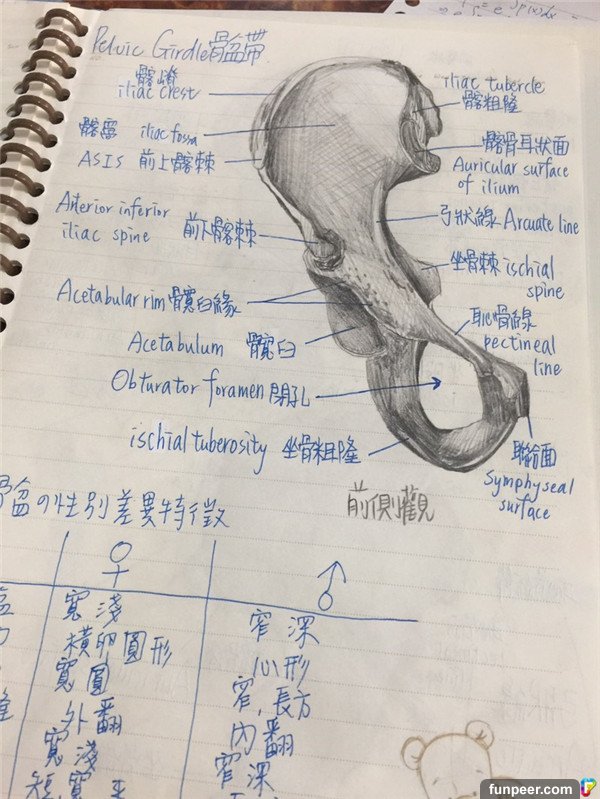 Pelvic Girdle骨盆帶
髂嵴
iliac crest
髂窩 iliac fossa
ASIS 前上髂棘
Anterior inferior
iliac spine 前下髂棘
Acetabular rim 髖臼緣
Acetabulum 髖臼
Obturator foramen 閉孔
ischial tuberosity 坐骨粗隆
iliac tubercle
髂粗隆
髂骨耳狀面
Auricular surface
of ilium
弓狀線 Arcuate line
坐骨棘 ischial
spine
恥骨線
pectineal
line
聯合面
Symphyseal
surface
前側觀
骨盆の性別差異特徵
♀ ♂
寬淺 窄深
橫卵圓形 心形
寬圓 窄,長方
外翻 內翻
寬淺 窄深
funpeer.com